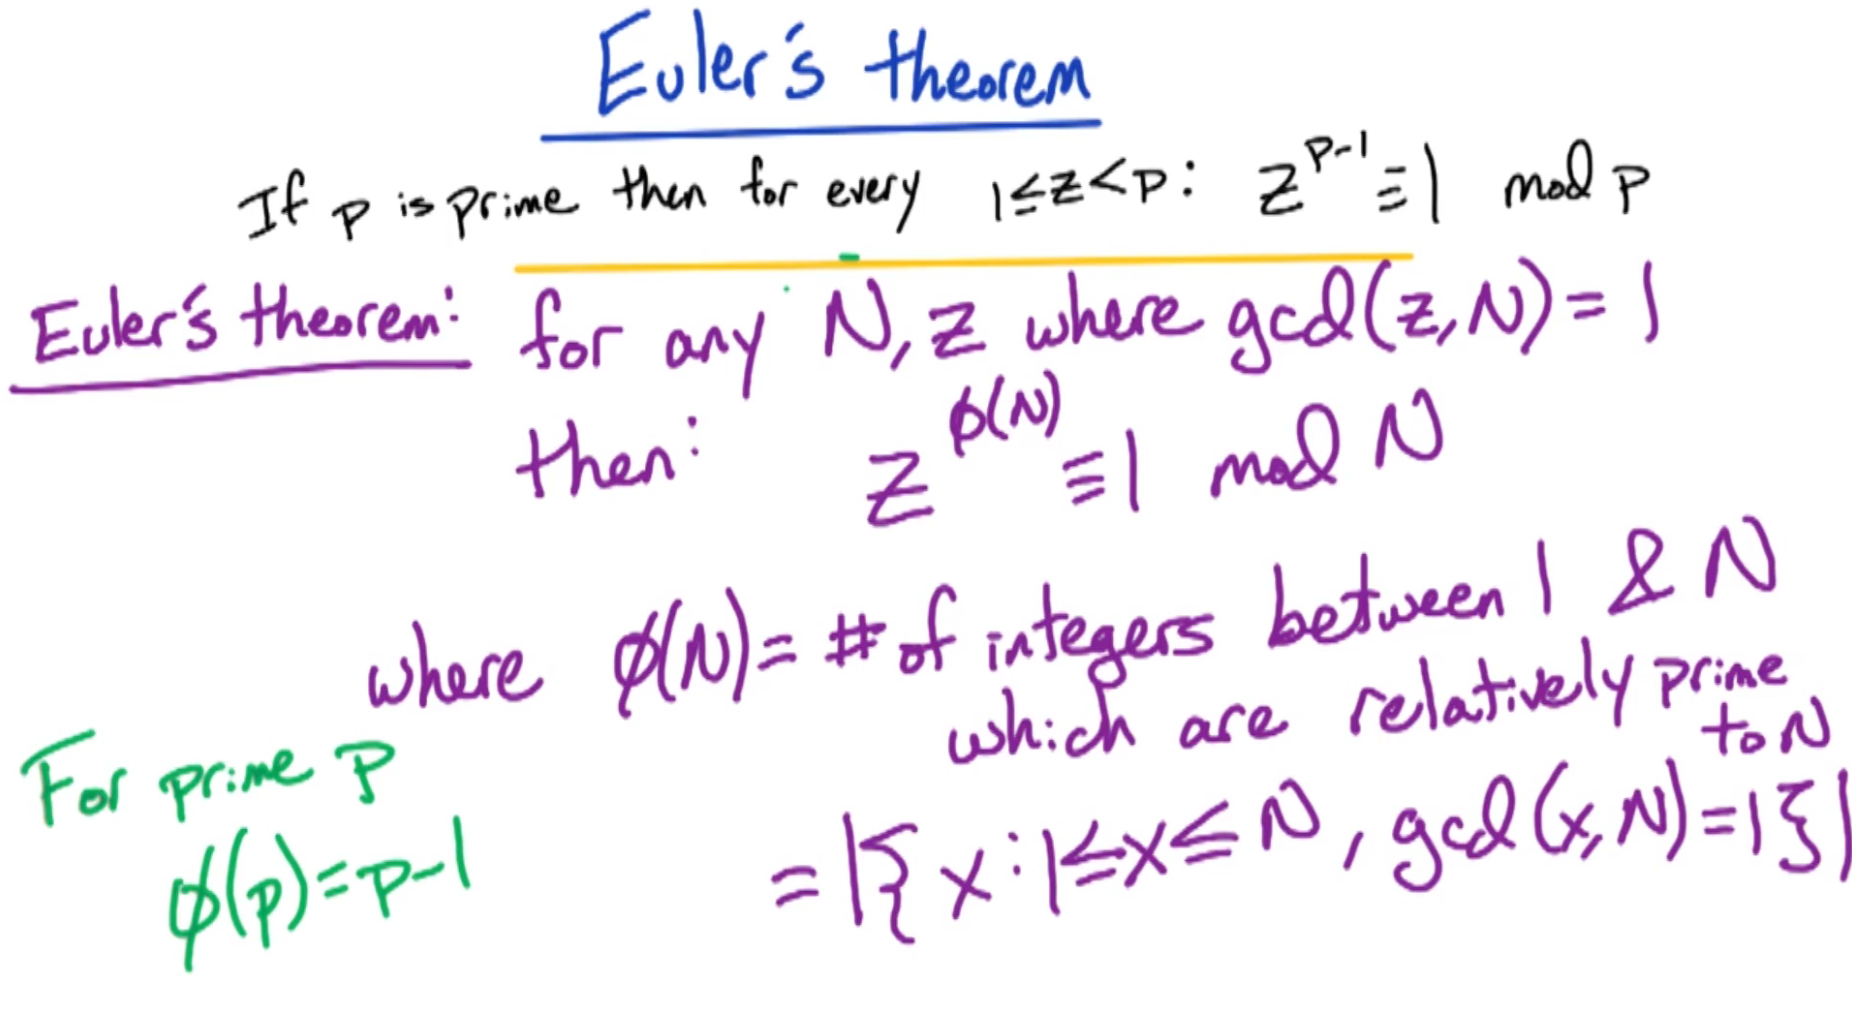 Euler's theorem
If p is prime then for every 1≤z<p: z^{p-1} ≡ 1 mod p
Euler's theorem: for any N, z where gcd(z,N) = 1
then: z^{ϕ(N)} ≡ 1 mod N
where ϕ(N) = # of integers between 1 & N
which are relatively prime
to N
= |{x : 1≤x≤N, gcd(x,N)=1}|
For prime p
ϕ(p)=p-1